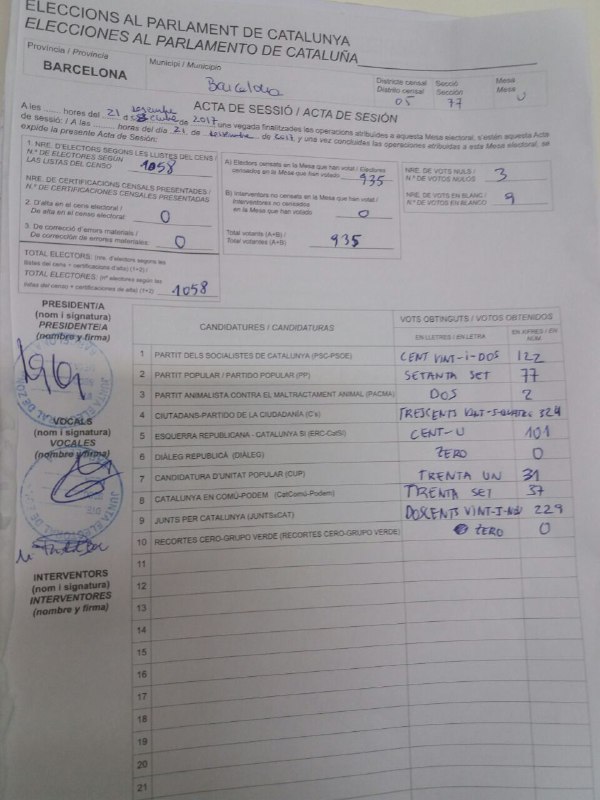 ELECCIONS AL PARLAMENT DE CATALUNYA
ELECCIONES AL PARLAMENTO DE CATALUÑA
Provincia / Provincia
BARCELONA
Municipi / Municipio
Barcelona
Districte censal
Distrito censal
05
Secció
Sección
77
Mesa
Mesa
U
ACTA DE SESSIÓ / ACTA DE SESIÓN
A les ........ hores del 21 de 2017 una vegada finalitzades les operacions atribuïdes a aquesta Mesa electoral, s'estén aquesta Acta
de sessió: / A las .......... horas del día 21 de 2017 y una vez concluidas las operaciones atribuidas a esta Mesa electoral, se
expide la presente Acta de Sesión:
1. NRE. D'ELECTORS SEGONS LES LLISTES DEL CENS /
N.º DE ELECTORES SEGÚN
LAS LISTAS DEL CENSO
1058
NRE. DE CERTIFICACIONS CENSALS PRESENTADES /
N.º DE CERTIFICACIONES CENSALES PRESENTADAS
2. D'alta en el cens electoral /
De alta en el censo electoral:
0
3. De correcció d'errors materials /
De corrección de errores materiales:
0
TOTAL ELECTORS: (nre. d'electors segons les
llistes del cens + certificacions d'alta) (1+2) /
TOTAL ELECTORES: (nº electores según las
listas del censo + certificaciones de alta) (1+2)
1058
A) Electors censats en la Mesa que han votat / Electores
censados en la Mesa que han votado
935
B) Interventors no censats en la Mesa que han votat /
Interventores no censados
en la Mesa que han votado
0
Total votants (A+B) /
Total votantes (A+B)
935
NRE. DE VOTS NULS /
N.º DE VOTOS NULOS
3
NRE. DE VOTS EN BLANC /
N.º DE VOTOS EN BLANCO
9
PRESIDENT/A
(nom i signatura)
PRESIDENTE/A
(nombre y firma)
VOCALS
(nom i signatura)
VOCALES
(nombre y firma)
INTERVENTORS
(nom i signatura)
INTERVENTORES
(nombre y firma)
CANDIDATURES / CANDIDATURAS
VOTS OBTINGUTS / VOTOS OBTENIDOS
EN LLETRES / EN LETRA
EN XIFRES / EN NÚM.
1 PARTIT DELS SOCIALISTES DE CATALUNYA (PSC-PSOE) CENT VINT-I-DOS 122
2 PARTIT POPULAR / PARTIDO POPULAR (PP) SETANTA SET 77
3 PARTIT ANIMALISTA CONTRA EL MALTRACTAMENT ANIMAL (PACMA) DOS 2
4 CIUTADANS-PARTIDO DE LA CIUDADANÍA (C's) TRESCENTS VINT-I-QUATRE 324
5 ESQUERRA REPUBLICANA - CATALUNYA SI (ERC-CatSí) CENT-U 101
6 DIÀLEG REPUBLICÀ (DIÀLEG) ZERO 0
7 CANDIDATURA D'UNITAT POPULAR (CUP) TRENTA UN 31
8 CATALUNYA EN COMÚ-PODEM (CatComú-Podem) TRENTA SET 37
9 JUNTS PER CATALUNYA (JUNTSxCAT) DOSCENTS VINT-I-NOU 229
10 RECORTES CERO-GRUPO VERDE (RECORTES CERO-GRUPO VERDE) ZERO 0
11
12
13
14
15
16
17
18
19
20
21